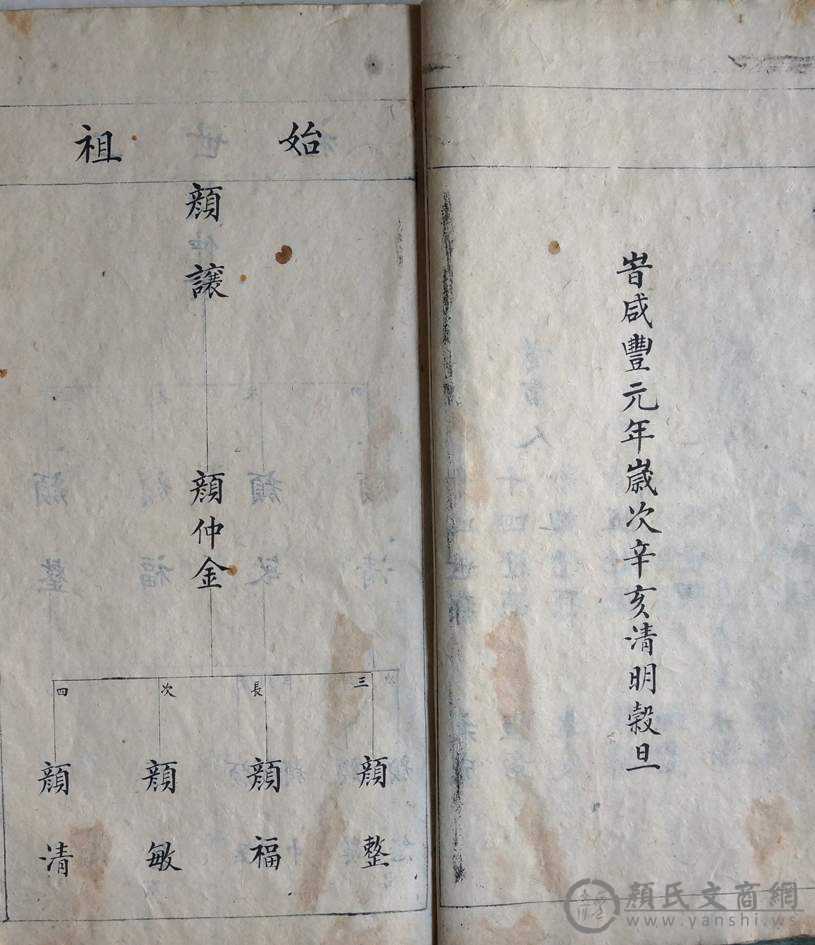 旹咸豐元年歲次辛亥清明穀旦
始祖
顏讓
顏仲金
三
長
次
四
顏整
顏福
顏敏
顏清
顏氏文商網
www.yanshi.ws